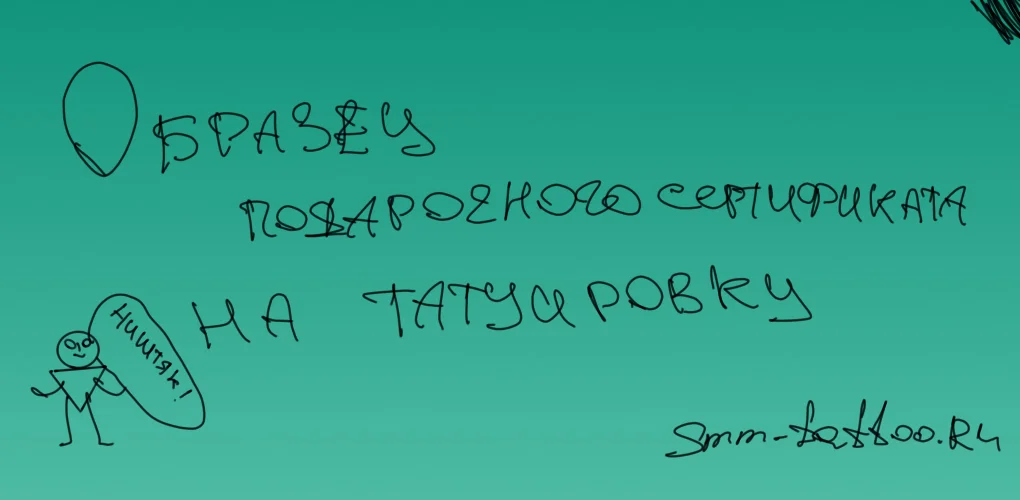 ОБРАЗЕЦ
ПОДАРОЧНОГО СЕРТИФИКАТА
НА ТАТУИРОВКУ
НИШТЯК!
smm-tattoo.Ru